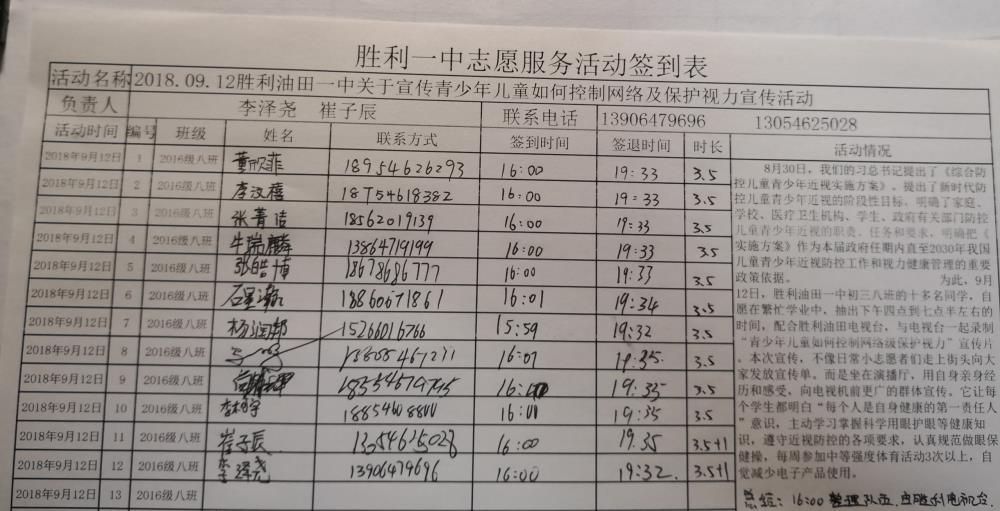 胜利一中志愿服务活动签到表
活动名称 2018.09.12胜利油田一中关于宣传青少年儿童如何控制网络及保护视力宣传活动
负责人 李泽尧 崔子辰 联系电话 13906479696 13054625028
活动时间 编号 班级 姓名 联系方式 签到时间 签退时间 时长 活动情况
2018年9月12日 1 2016级八班 董欣菲 18954626293 16:00 19:33 3.5
2018年9月12日 2 2016级八班 李汶禧 18754618382 16:00 19:33 3.5
2018年9月12日 3 2016级八班 张菁洁 18562019139 16:00 19:33 3.5
2018年9月12日 4 2016级八班 牛瑞麟 13864719199 16:00 19:33 3.5
2018年9月12日 5 2016级八班 张皓博 18678686777 16:00 19:33 3.5
2018年9月12日 6 2016级八班 18860671861 16:01 19:34 3.5
2018年9月12日 7 2016级八班 杨润邦 15266016766 15:59 19:32 3.5
2018年9月12日 8 2016级八班 16:01 19:35 3.5
2018年9月12日 9 2016级八班 16:00 19:35 3.5
2018年9月12日 10 2016级八班 18854608800 16:00 19:35 3.5
2018年9月12日 11 2016级八班 崔子辰 13054625028 16:00 19.35 3.5+1
2018年9月12日 12 2016级八班 李泽尧 13906479696 16:00 19:32. 3.5+1
2018年9月12日 13 2016级八班
8月30日，我们的习总书记提出了《综合防
控儿童青少年近视实施方案》。提出了新时代防
控儿童青少年近视的阶段性目标，明确了家庭、
学校、医疗卫生机构、学生、政府有关部门防控
儿童青少年近视的职责、任务和要求，明确把《
实施方案》作为本届政府任期内直至2030年我国
儿童青少年近视防控工作和视力健康管理的重要
政策依据。 为此，9月
12日，胜利油田一中初三八班的十多名同学，自
愿在繁忙学业中，抽出下午四点到七点半左右的
时间，配合胜利油田电视台，与电视台一起录制
“青少年儿童如何控制网络级保护视力”宣传片
。本次宣传，不像日常小志愿者们走上街头向大
家发放宣传单。而是坐在演播厅，用自身亲身经
历和感受，向电视机前更广的群体宣传。它让每
个学生都明白“每个人是自身健康的第一责任人
”意识，主动学习掌握科学用眼护眼等健康知
识，遵守近视防控的各项要求，认真规范做眼保
健操，每周参加中等强度体育活动3次以上，自
觉减少电子产品使用。
总结：16:00 整理队伍.由胜利电视台.